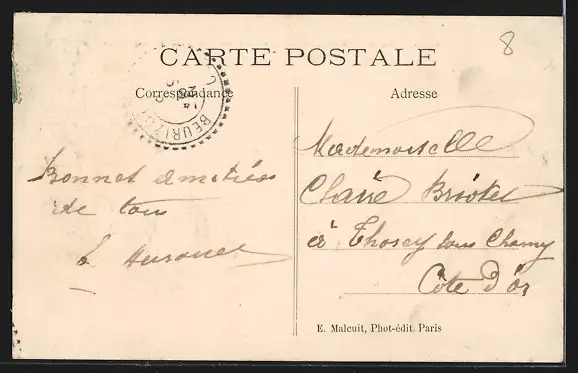 8
CARTE POSTALE
Correspondance
Adresse
BEURIZOT
Bonnes amitiés
de tous
Mademoiselle
Claire
à Thosey sous Charny
Côte d'or
E. Malcuit, Phot-édit. Paris